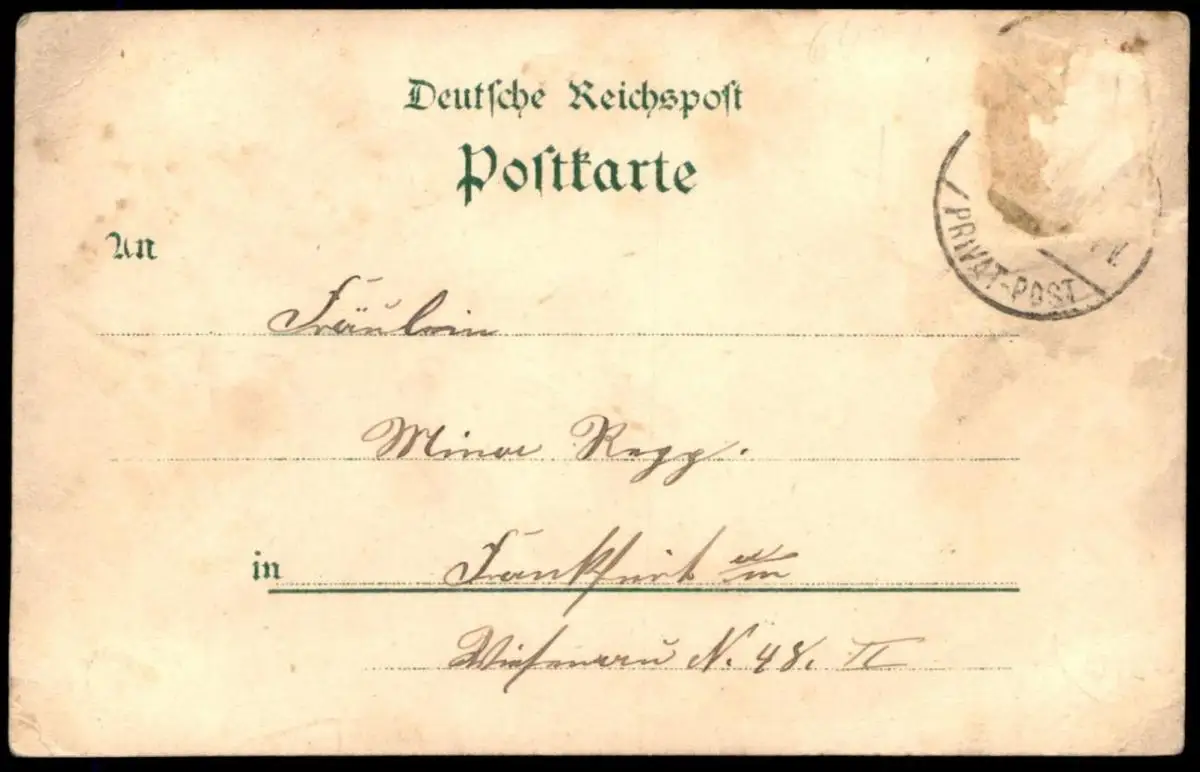 Deutsche Reichspost
Postkarte
PRIVAT-POST
An
Fräulein
Minna Rapp.
in Frankfurt a/m
N. 48. II